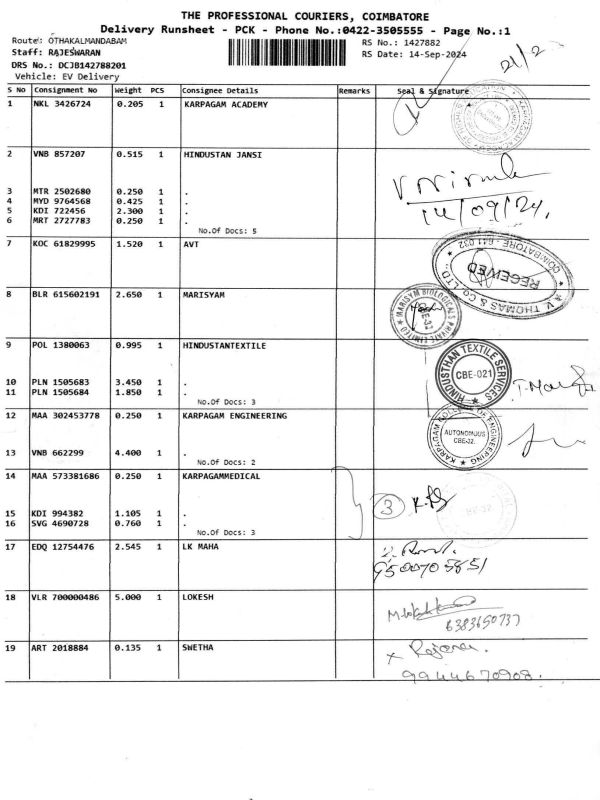 THE PROFESSIONAL COURIERS, COIMBATORE
Delivery Runsheet - PCK - Phone No.:0422-3505555 - Page No.:1
Route: OTHAKALMANDABAM
RS No.: 1427882
Staff: RAJESWARAN
RS Date: 14-Sep-2024
DRS No.: DCJB142788201
Vehicle: EV Delivery
S No Consignment No Weight PCS Consignee Details Remarks Seal & Signature
1 NKL 3426724 0.205 1 KARPAGAM ACADEMY
2 VNB 857207 0.515 1 HINDUSTAN JANSI
V Nirmala
14/09/24.
3 MTR 2502680 0.250 1 .
4 MYD 9764568 0.425 1 .
5 KDI 722456 2.300 1 .
6 MRT 2727783 0.250 1 .
No.Of Docs: 5
7 KOC 61829995 1.520 1 AVT
A.V. THOMAS & CO. LTD. COIMBATORE - 641 032
RECEIVED
8 BLR 615602191 2.650 1 MARISYAM
MARISYM BIOLOGICALS PRIVATE LIMITED
CBE-32
9 POL 1380063 0.995 1 HINDUSTANTEXTILE
HINDUSTHAN TEXTILE SERVICES
CBE-021
10 PLN 1505683 3.450 1 .
11 PLN 1505684 1.850 1 .
No.Of Docs: 3
12 MAA 302453778 0.250 1 KARPAGAM ENGINEERING
KARPAGAM COLLEGE OF ENGINEERING
AUTONOMOUS
CBE-32.
13 VNB 662299 4.400 1 .
No.Of Docs: 2
14 MAA 573381686 0.250 1 KARPAGAMMEDICAL
3
15 KDI 994382 1.105 1 .
16 SVG 4690728 0.760 1 .
No.Of Docs: 3
17 EDQ 12754476 2.545 1 LK MAHA
18 VLR 700000486 5.000 1 LOKESH
6383650737
19 ART 2018884 0.135 1 SWETHA
9944670908.